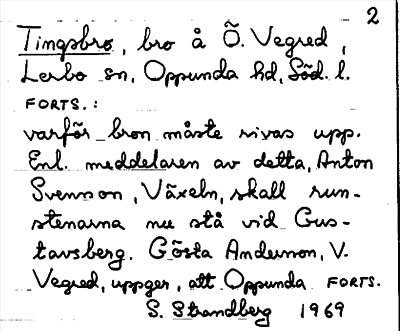 2
Tingsbro, bro å Ö. Vegred,
Lerbo sn, Oppunda hd, Söd. l.
FORTS.:
varför bron måste rivas upp.
Enl. meddelaren av detta, Anton
Svensson, Växeln, skall run-
stenarna nu stå vid Gus-
tavsberg. Gösta Andersson, V.
Vegred, uppger, att Oppunda FORTS.
S. Strandberg 1969